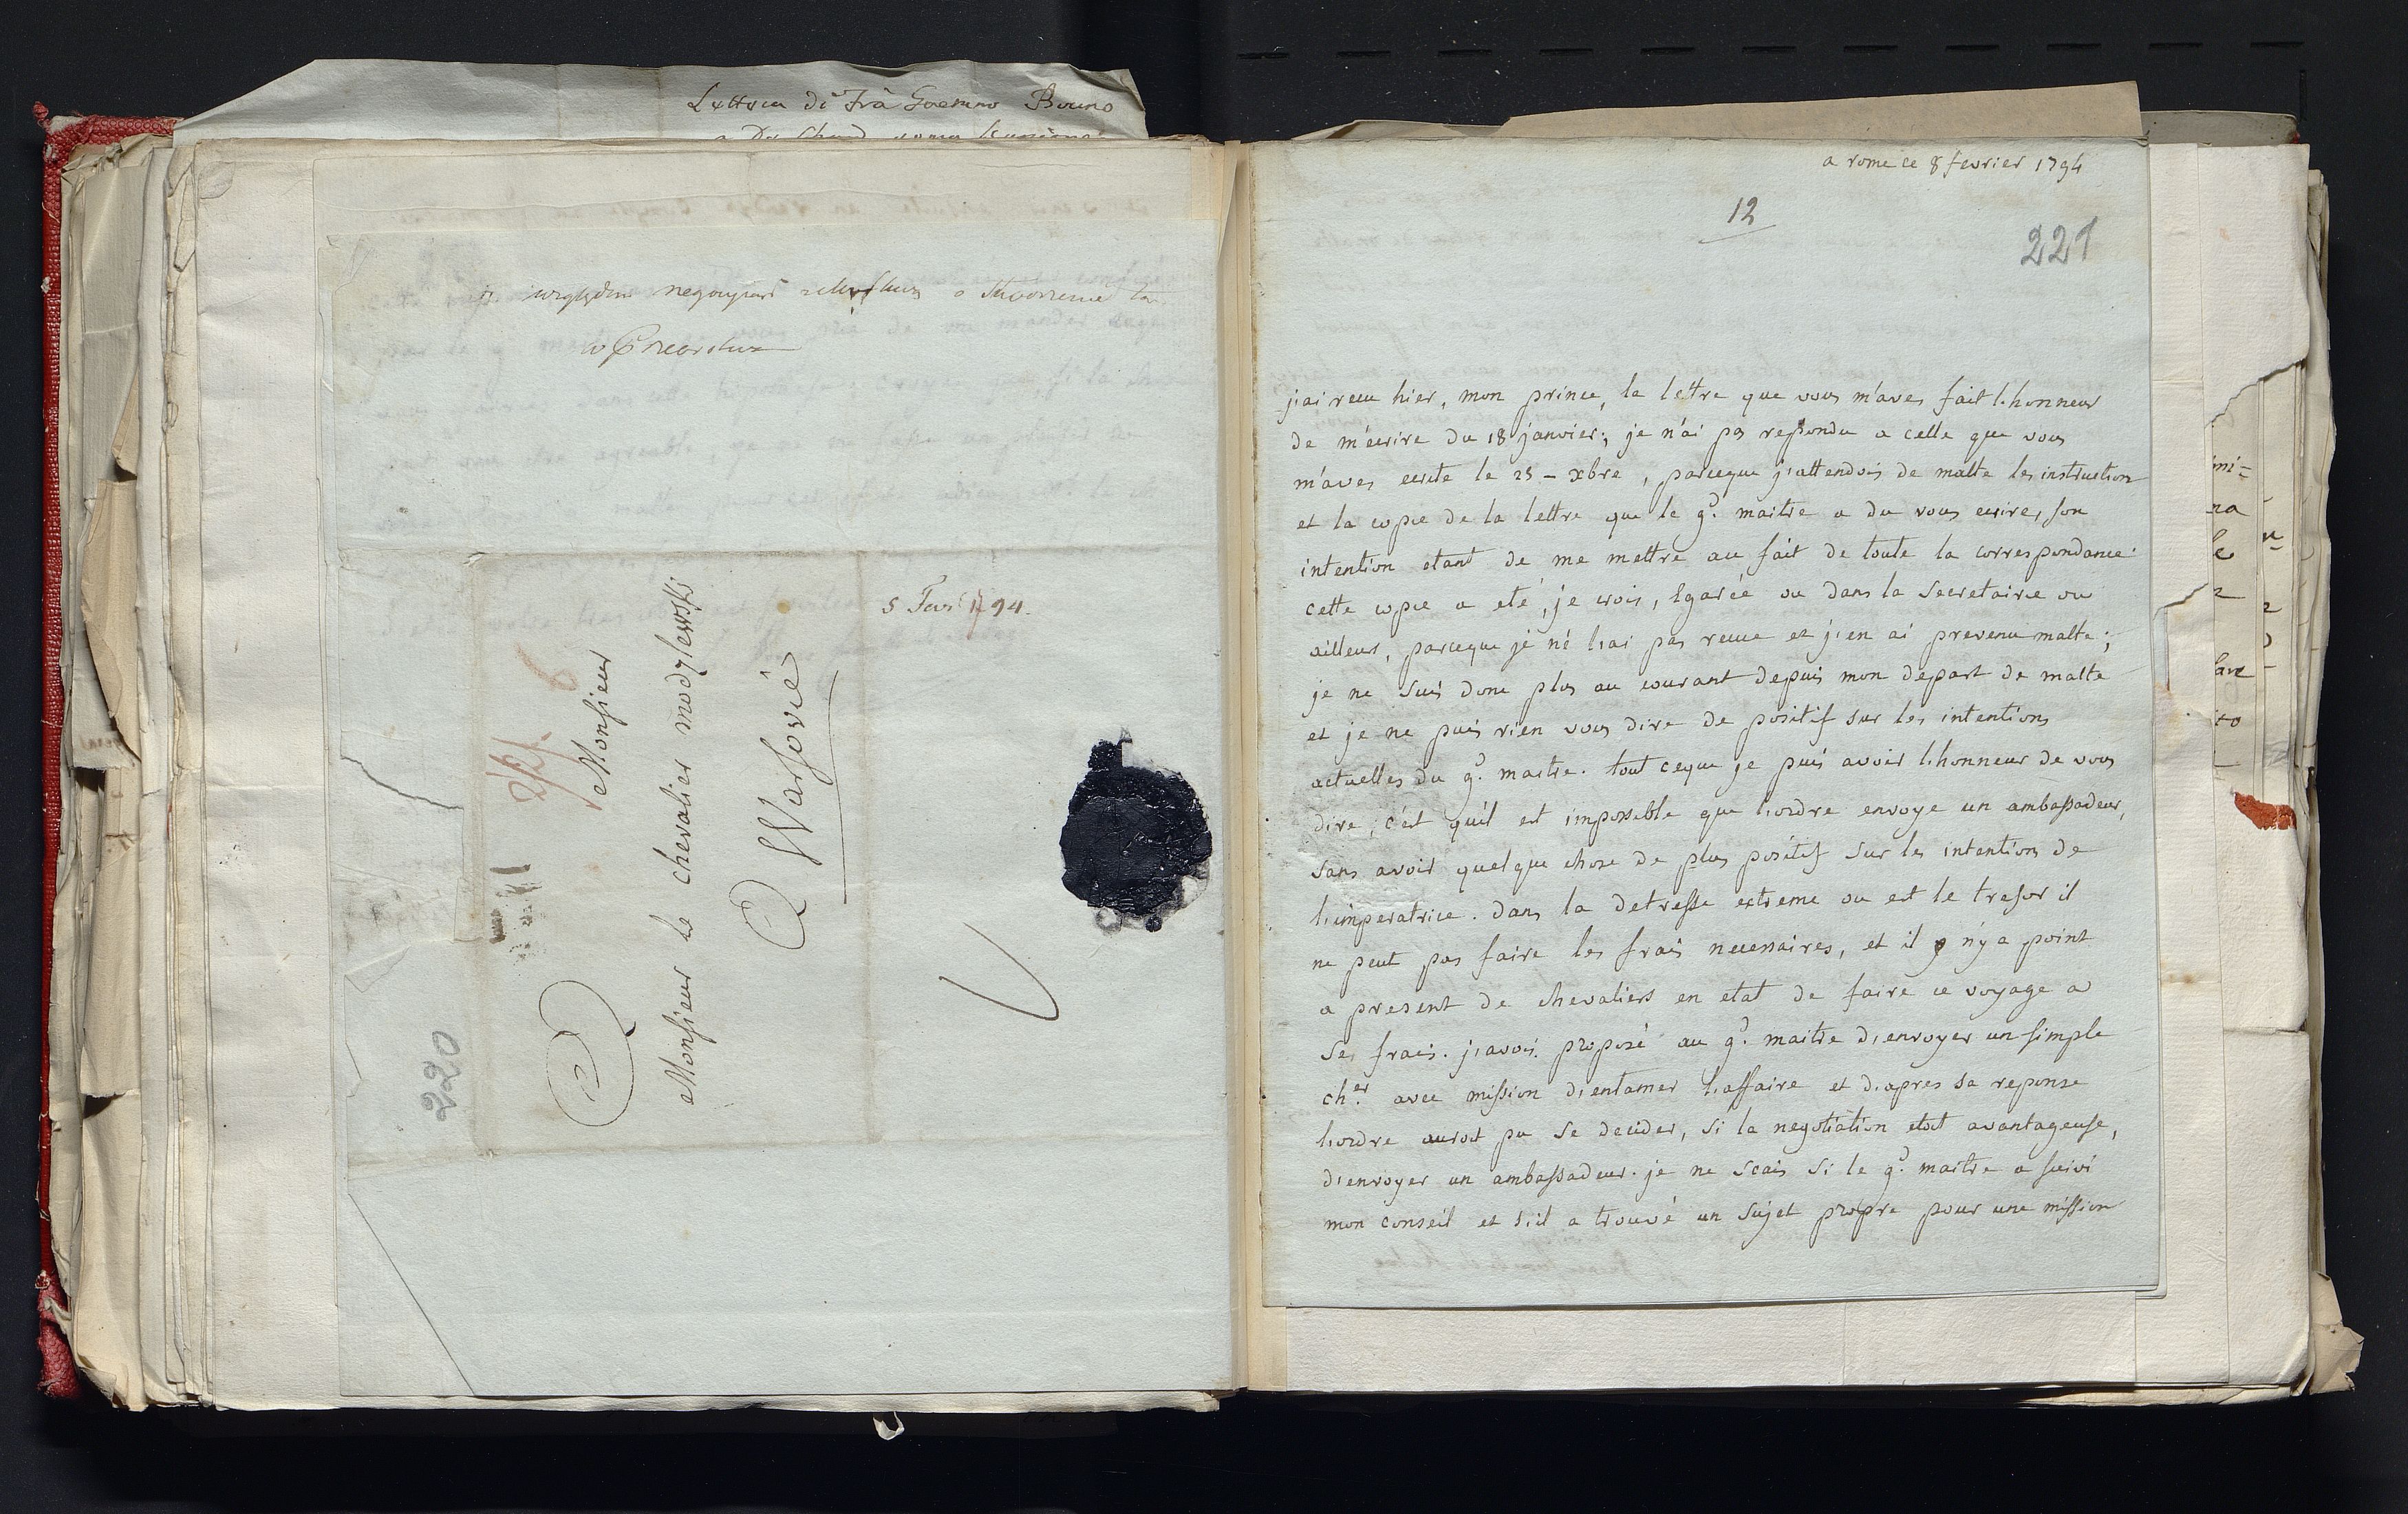 Lettera di Frà Gaetano Bruno
negocyacyi
5 Fevr 1794.
Monsieur
Monsieur le chevalier modzlewski
a Warsovie
220
a rome ce 8 fevrier 1794
12
221
j'ai recu hier, mon prince, la lettre que vous m'aves fait l'honneur
de m'ecrire du 18 janvier; je n'ai pas repondu a celle que vous
m'aves ecrite le 25 - xbre, parceque j'attendois de malte les instruction
et la copie de la lettre que le g.d maitre a du vous ecrire, son
intention etant de me mettre au fait de toute la correspondance.
cette copie a eté, je crois, egarée ou dans la Secretairie ou
ailleur, parceque je né l'ai pas recue et j'en ai prevenu malte;
je ne suis donc plus au courant depuis mon depart de malte
et je ne puis rien vous dire de positif sur les intentions
actuelles du g.d maitre. tout ceque je puis avoir l'honneur de vous
dire, c'est qu'il est impossible que l'ordre envoye un ambassadeur,
sans avoir quelque chose de plus positif sur les intentions de
l'imperatrice. dans la detresse extreme ou est le tresor il
ne peut pas faire les frais necessaires, et il n'y a point
a present de chevaliers en etat de faire ce voyage a
ses frais. j'avois proposé au g.d maitre d'envoyer un simple
ch.er avec mission d'entamer l'affaire et d'apres sa reponse
l'ordre auroit pu se decider, si la negotiation etoit avantageuse,
d'envoyer un ambassadeur. je ne scais si le g.d maitre a suivi
mon conseil et s'il a trouvé un sujet propre pour une mission